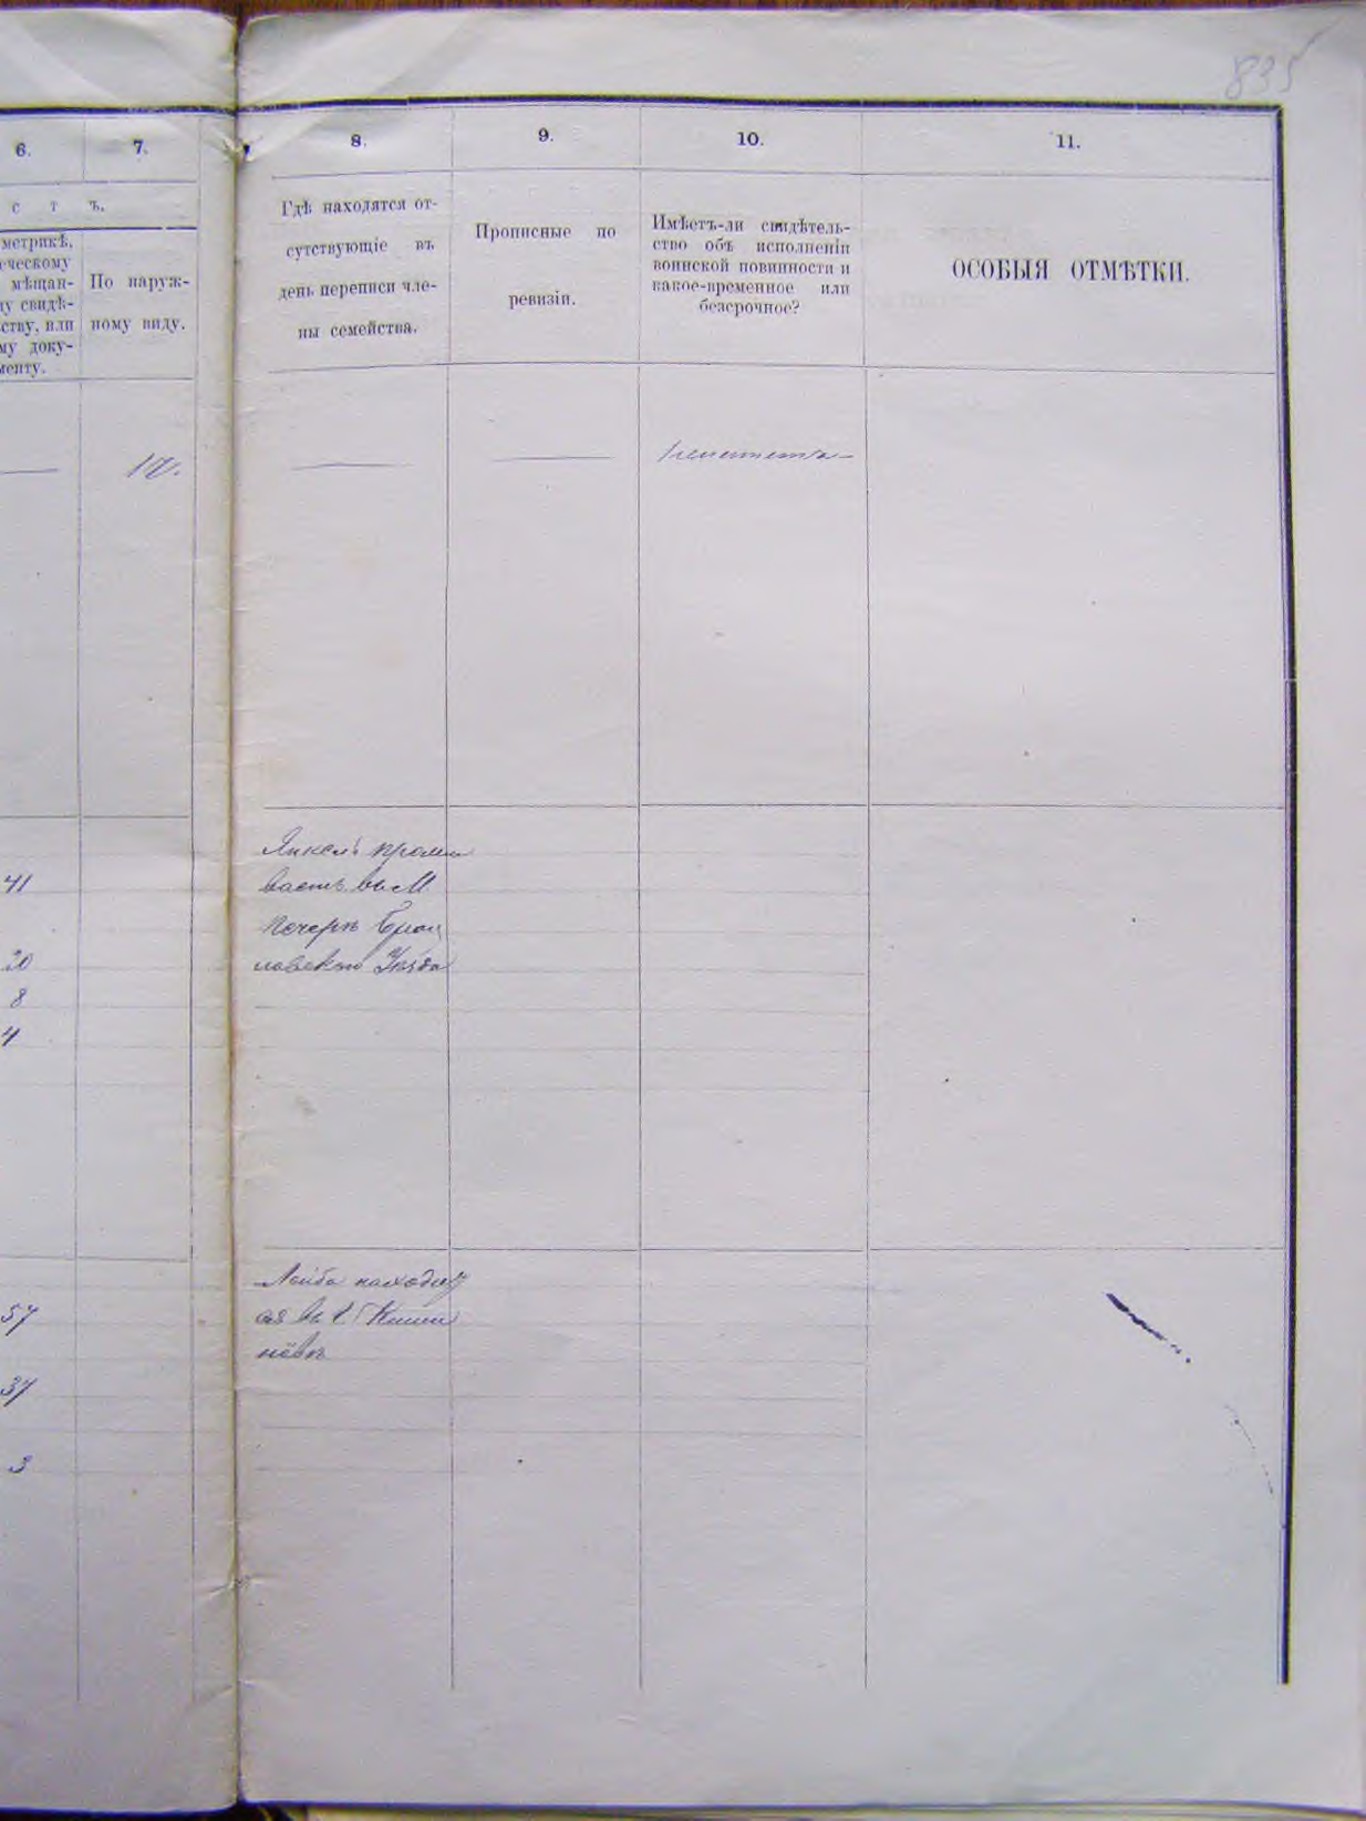 835
6.
7.
8.
9.
10.
11.
с т ъ.
метрикѣ,
ческому
мѣщан-
свидѣ-
ству, или
му доку-
менту.
По наруж-
ному виду.
Гдѣ находятся от-
сутствующіе въ
день переписи чле-
ны семейства.
Прописные по
ревизіи.
Имѣетъ-ли свидѣтель-
ство объ исполненіи
воинской повинности и
какое-временное или
безсрочное?
ОСОБЫЯ ОТМѢТКИ.
Янкель прожи
ваетъ въ М
Печерѣ Брац
лавскаго Уѣзда
41
20
8
4
Лейба находит
ся въ г Киши
нёвѣ
57
37
3